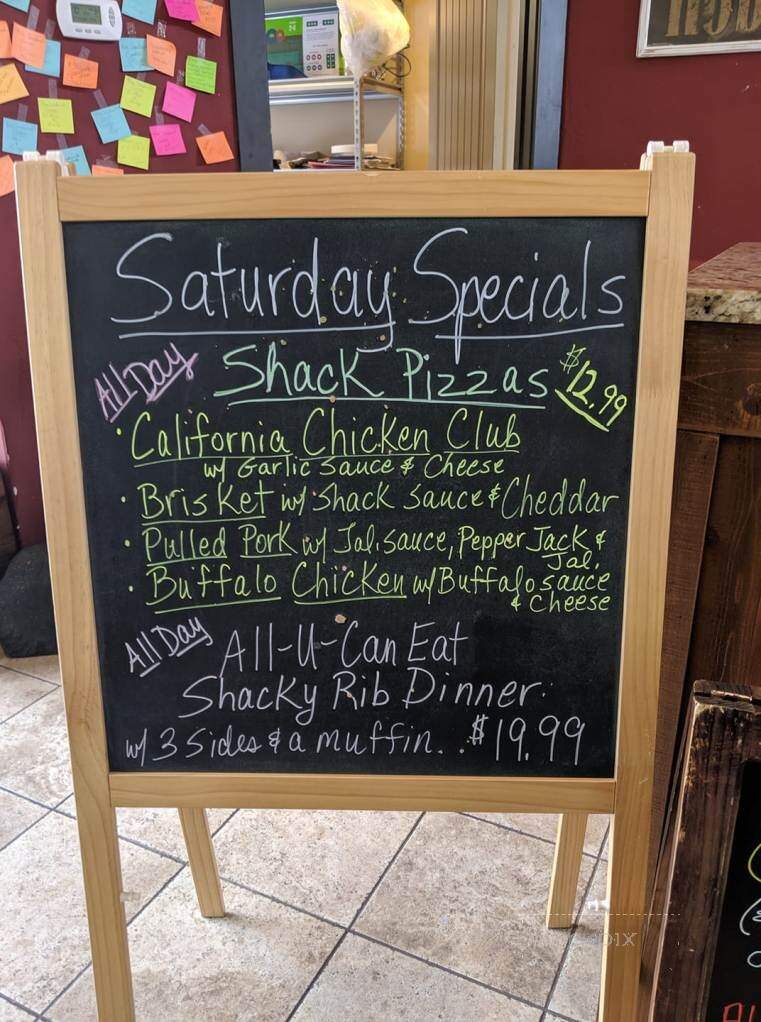 Saturday Specials
All Day
Shack Pizzas
$12.99
• California Chicken Club
w/ Garlic Sauce & Cheese
• Brisket w/ Shack Sauce & Cheddar
• Pulled Pork w/ Jal. sauce, Pepper Jack &
Jal.
• Buffalo Chicken w/ Buffalo sauce
& Cheese
All Day
All-U-Can Eat
Shacky Rib Dinner
w/ 3 Sides & a muffin... $19.99